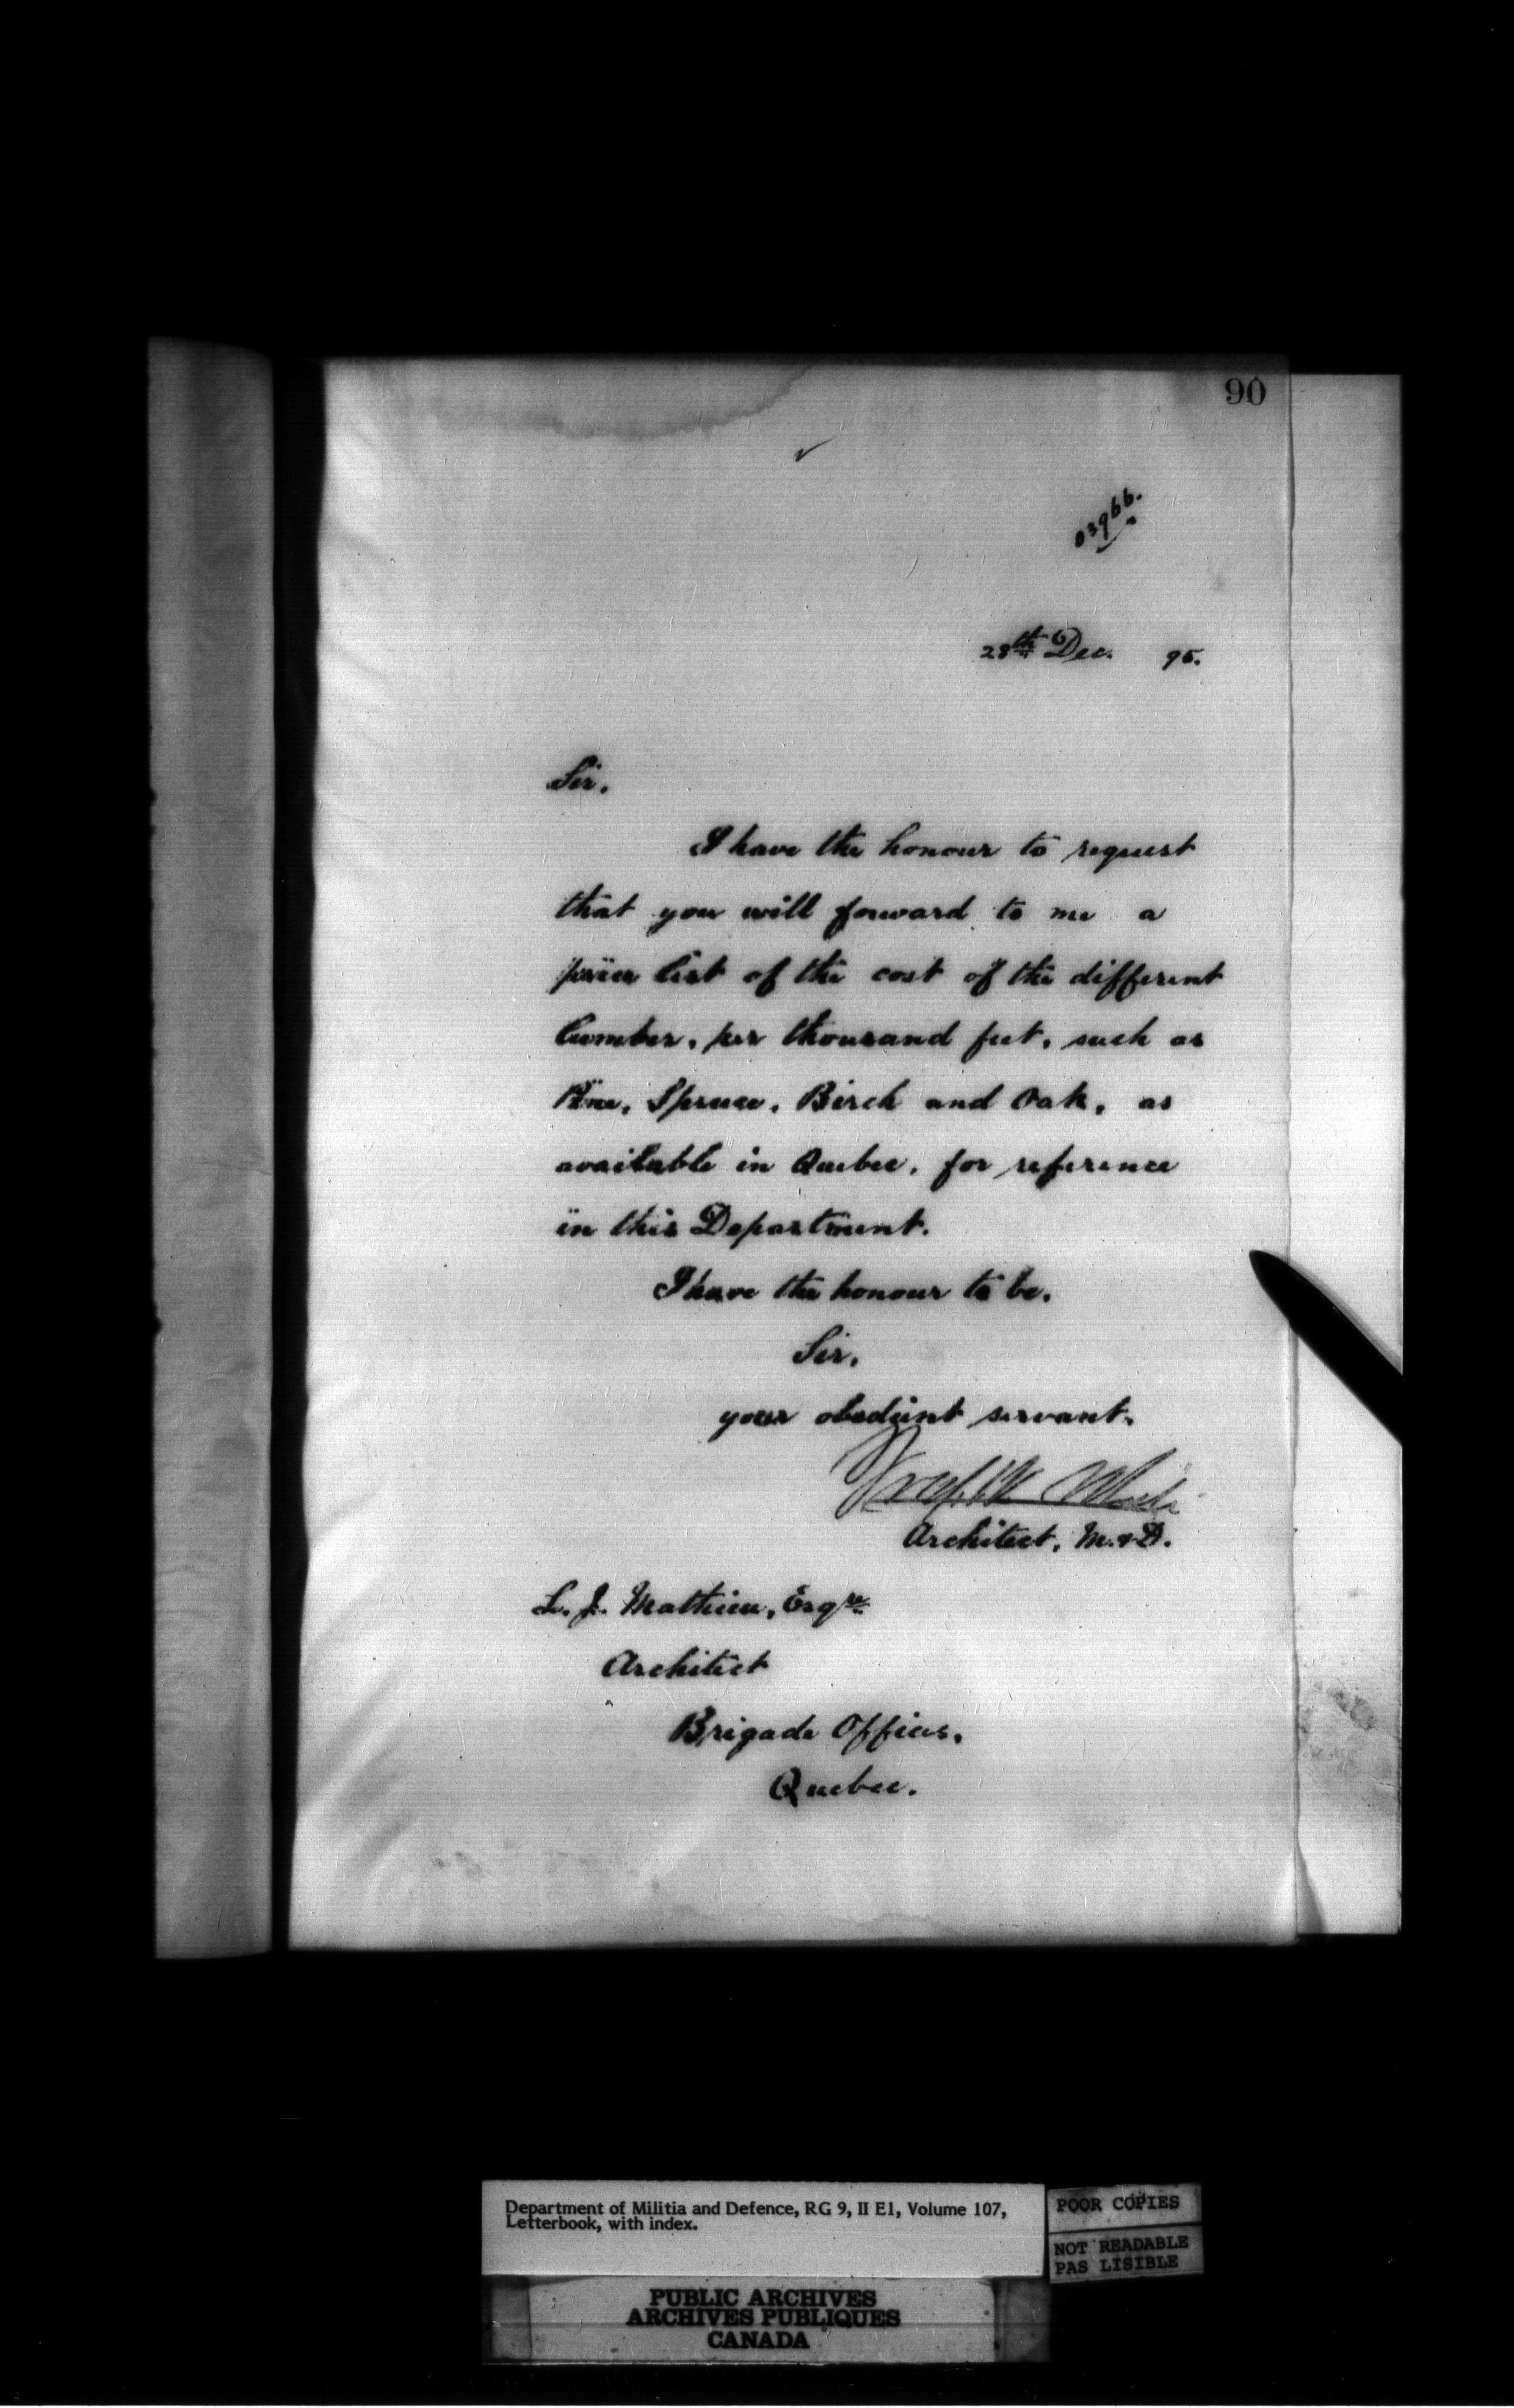 90
03966.
28th Dec. 95.
Sir,
I have the honour to request
that you will forward to me a
price list of the cost of the different
lumber, per thousand feet, such as
Pine, Spruce, Birch and Oak, as
available in Quebec, for reference
in this Department.
I have the honour to be,
Sir,
your obedient servant,
Architect, M. & D.
L. J. Mathieu, Esqre
Architect
Brigade Offices,
Quebec.
Department of Militia and Defence, RG 9, II E1, Volume 107,
Letterbook, with index.
POOR COPIES
NOT READABLE
PAS LISIBLE
PUBLIC ARCHIVES
ARCHIVES PUBLIQUES
CANADA